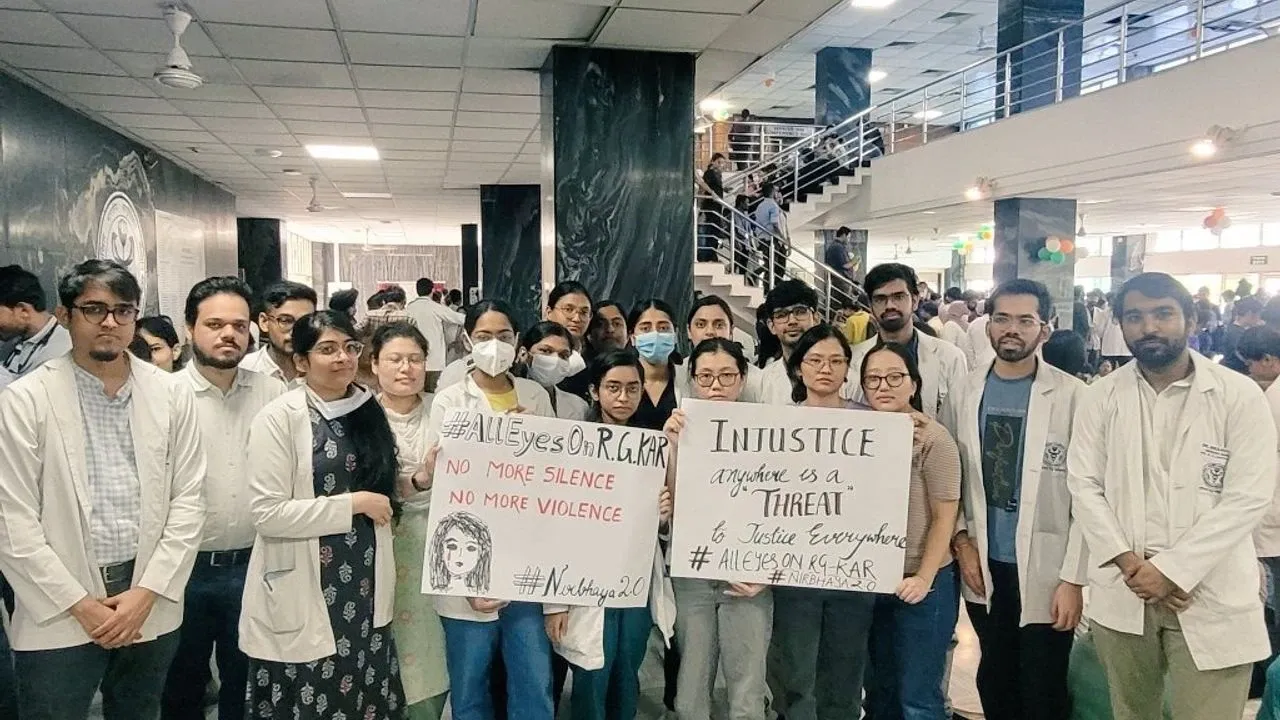 #AllEyesOnR.G.KAR
NO MORE SILENCE
NO MORE VIOLENCE
#Nirbhaya2.0
INJUSTICE
anywhere is a
"THREAT"
to Justice Everywhere
# All EYES ON RG-KAR
#NIRBHAYA 2.0